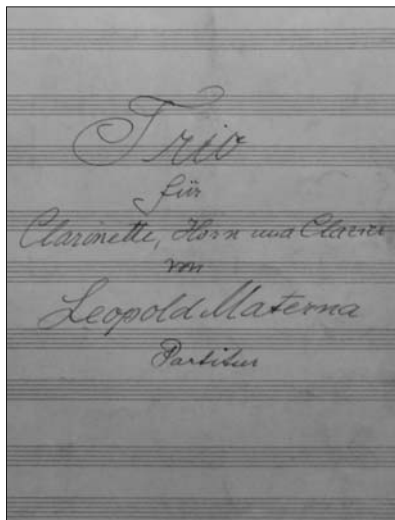 Trio
für
Clarinette, Horn und Clavier
von
Leopold Materna
Partitur